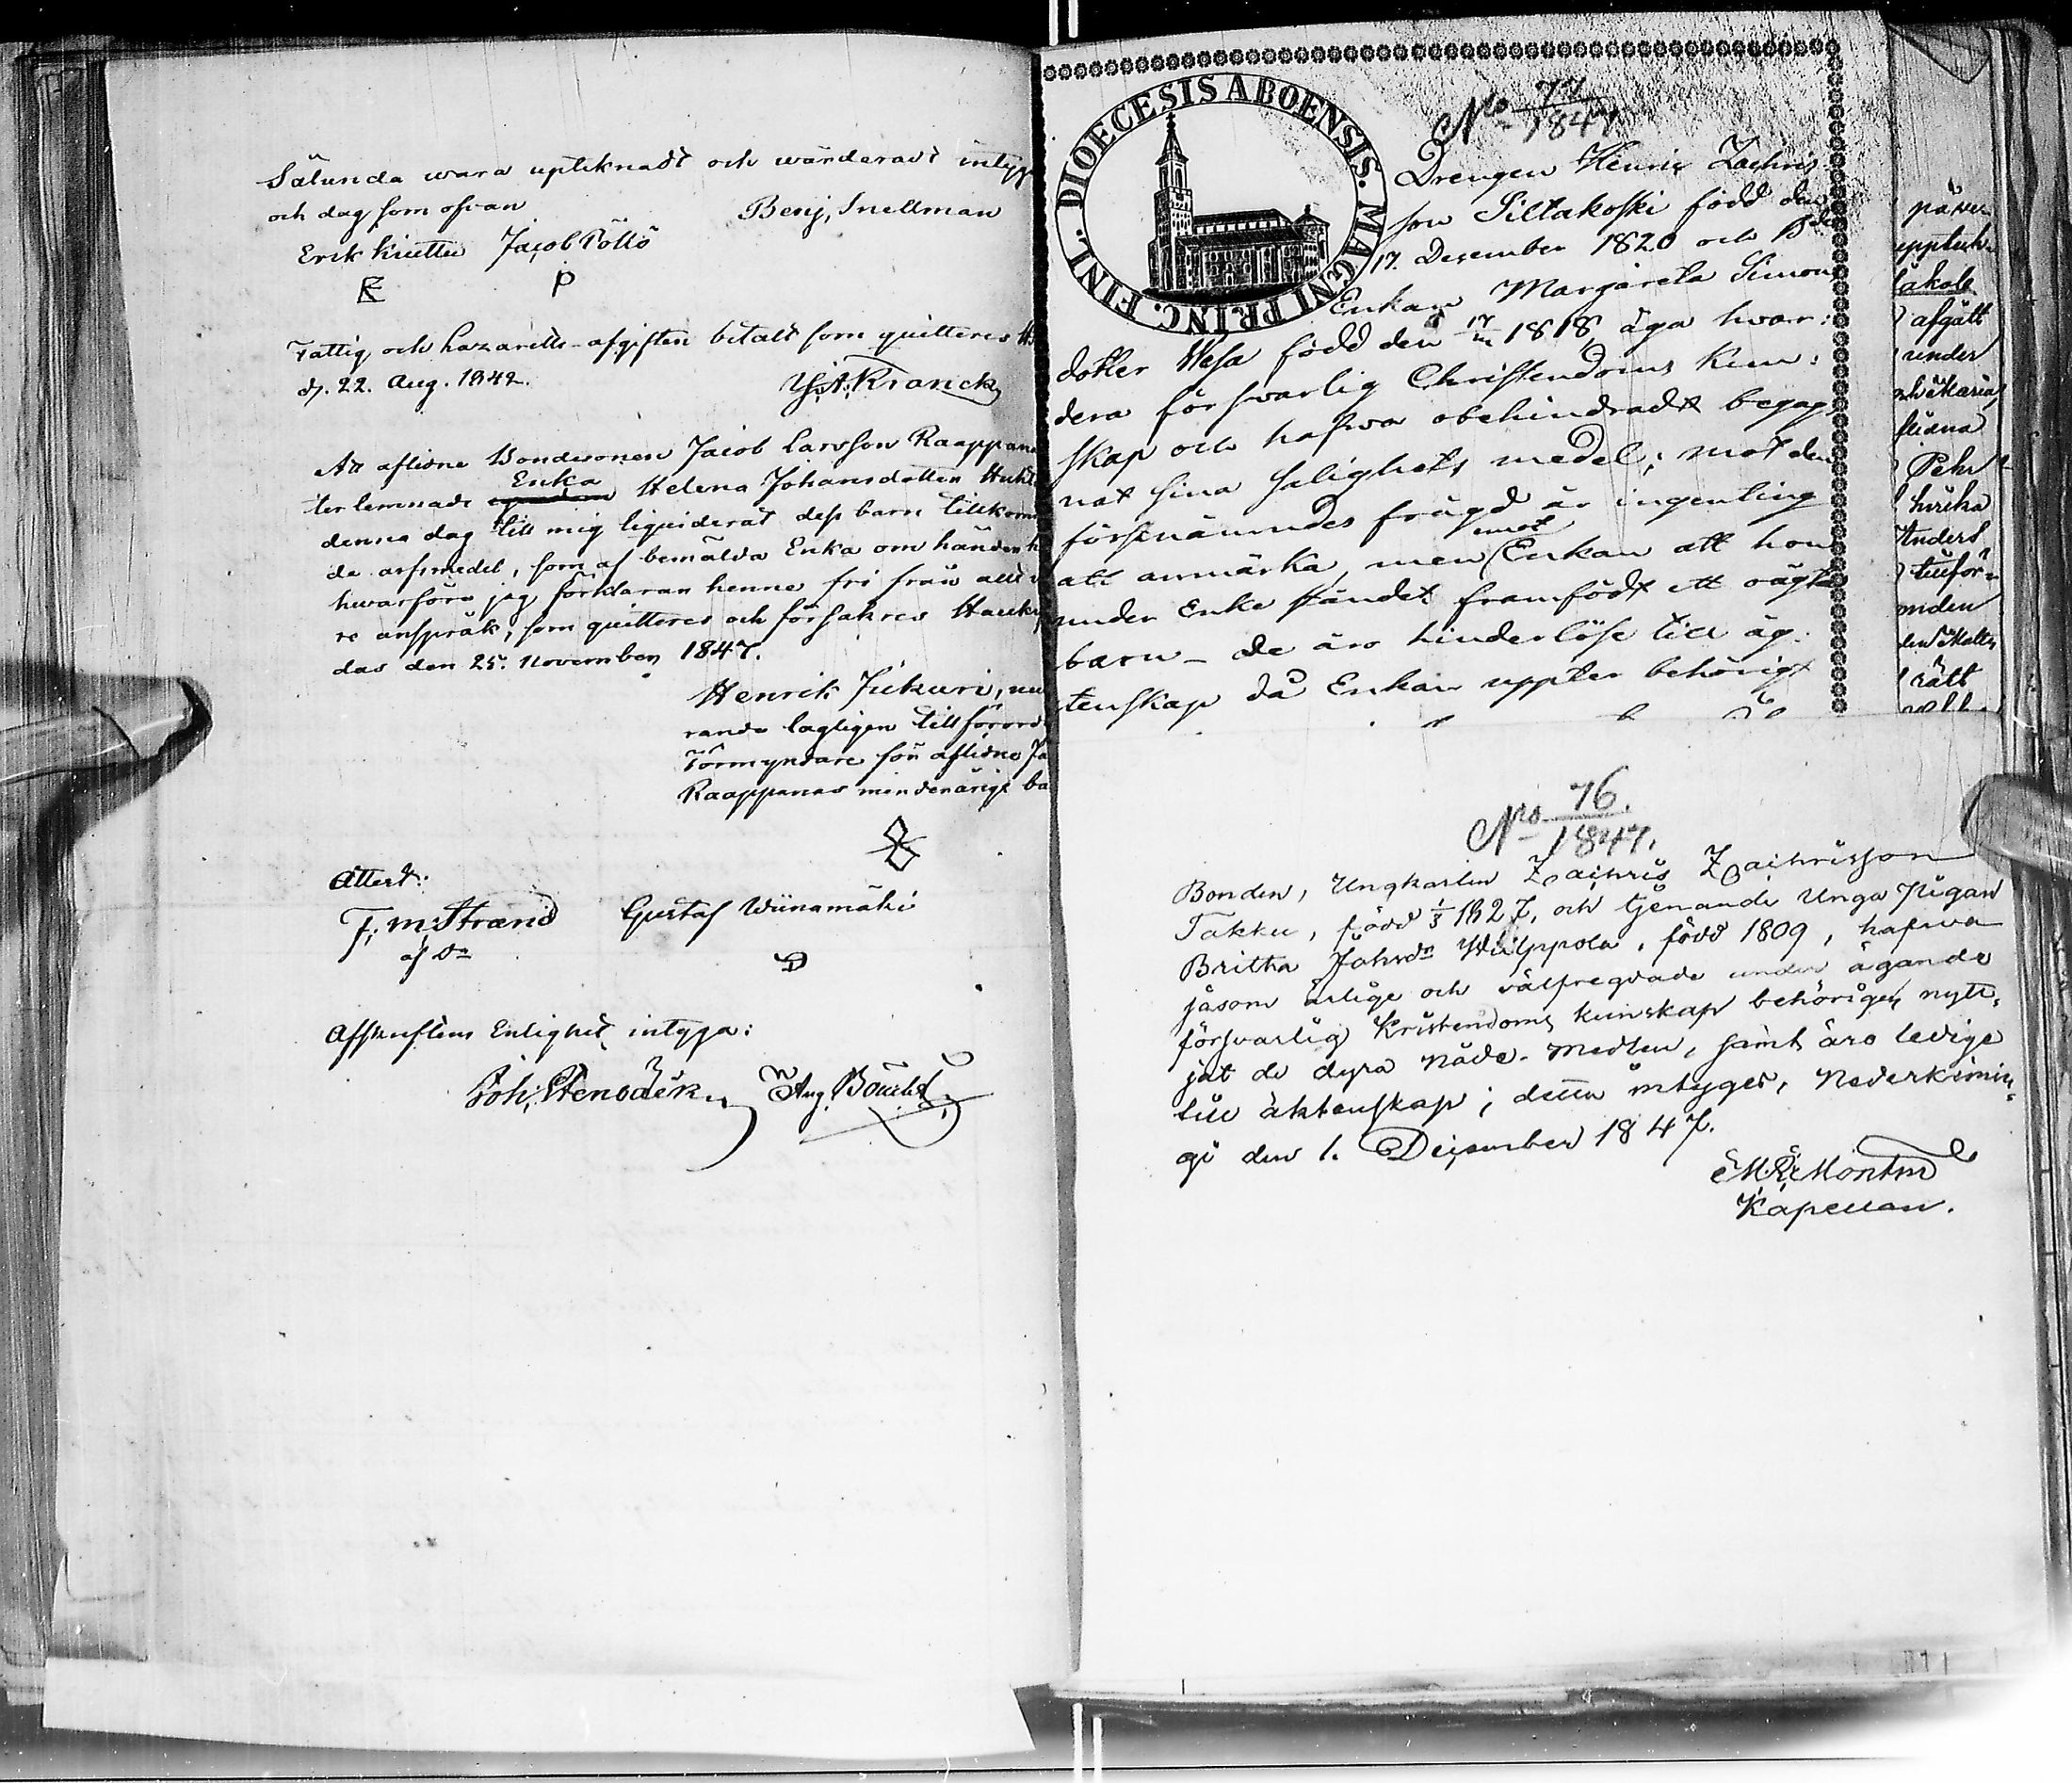 Sålunda wara upteknadt och wärderadt intyga
och dag som ofvan Benj. Snellman
Erik Kinttu Jacob Pöllö
Fattig och Lazaretts-afgiften betalt som quitteres
d. 22. Aug. 1842. Franck
At aflidne Bondesonen Jacob Larsson Raappana
terlemnade Enka Helena Johansdotter
denna dag till mig liquiderat dess barn tillkom
de arfsmedel, som af bemälda Enka om händer
hwarföre jag förklarar henne fri från all
re anspråk, som quitteres och försäkras Hauki
das den 25. November 1847.
Henrik Jukuri, nu
rande lagligen tillförord
Förmyndare för aflidne Ja
Raappanas minderårige ba
Attest:
F. M. Strand Gustaf Wiinamäki
Afskriftens Enlighet intyga:
Joh. Stenbäck Aug.
DIOECESIS ABOENSIS. MAGNI PRINC. FINL.
No 77/1847
Drengen Henric Zachris
son Piltakoski född den
17. December 1820 och
Enkan Margareta Simons
dotter Wesa född den 1818, äga hvar:
dera försvarlig Christendoms kun:
skap och hafva obehindradt begag
nat sina salighets medel; mot den
förstnämndes frägd är ingenting
att anmärka, men emot Enkan att hon
under Enke ståndet framfödt ett oägta
barn - de äro hinderlöse till äg:
tenskap då Enkan uppter behörigt
afgått
under
Maria
flidna
Pehr
Anders
tillför=
rätt
Nro 76./1847.
Bonden, Ungkarlen Zachris Zachrisson
Takku, född 1827, och tjenande Unga Pigan
Britha Johsdr Wilppola, född 1809, hafva
såsom ärlige och välfregdade under ägande
försvarlig Kristendoms kunskap behörigen nytt:
jat de dyra Nåde-Medlen, samt äro ledige
till äktenskap; detta intyges, Nederkimin:
gi den 1. December 1847.
Montin
Kapellan.